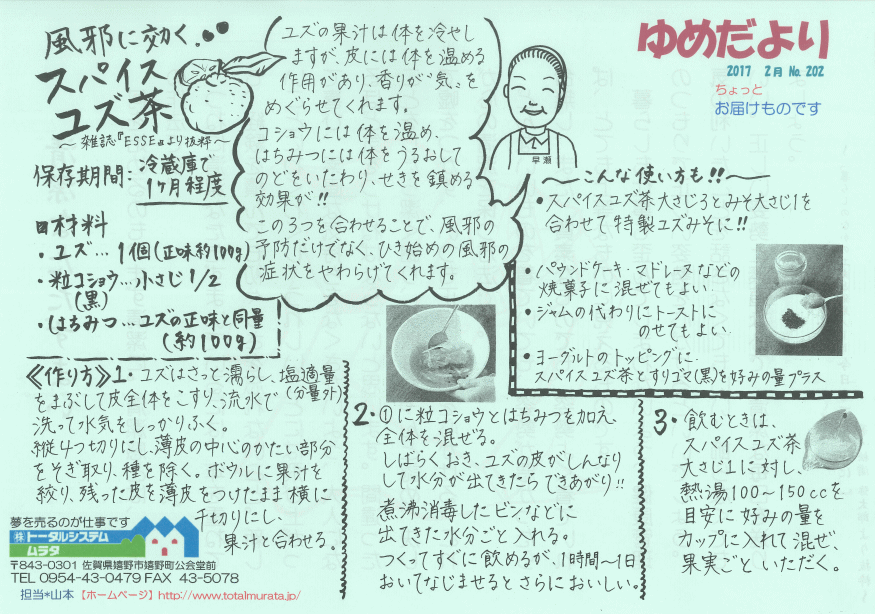 風邪に効く・・
スパイス
ユズ茶
〜雑誌『ESSE』より抜粋〜
保存期間:冷蔵庫で
1ヶ月程度
材料
・ユズ…1個(正味約100g)
・粒コショウ…小さじ1/2
(黒)
・はちみつ…ユズの正味と同量
(約100g)
ユズの果汁は体を冷やし
ますが、皮には体を温める
作用があり、香りが"気"を
めぐらせてくれます。
コショウには体を温め、
はちみつには体をうるおして
のどをいたわり、せきを鎮める
効果が!!
この3つを合わせることで、風邪の
予防だけでなく、ひき始めの風邪の
症状をやわらげてくれます。
早瀬
ゆめだより
2017 2月 No.202
ちょっと
お届けものです
〜こんな使い方も!!〜
・スパイスユズ茶大さじ3とみそ大さじ1を
合わせて特製ユズみそに!!
・パウンドケーキ・マドレーヌなどの
焼菓子に混ぜてもよい.
・ジャムの代わりにトーストに
のせてもよい.
・ヨーグルトのトッピングに.
スパイスユズ茶とすりゴマ(黒)を好みの量プラス
《作り方》1・ユズはさっと濡らし、塩適量
(分量外)
をまぶして皮全体をこすり、流水で
洗って水気をしっかりふく。
縦4つ切りにし、薄皮の中心のかたい部分
をそぎ取り、種を除く。ボウルに果汁を
絞り、残った皮を薄皮をつけたまま横に
千切りにし、
果汁と合わせる。
2・①に粒コショウとはちみつを加え、
全体を混ぜる。
しばらくおき、ユズの皮がしんなり
して水分が出てきたらできあがり!!
煮沸消毒したビンなどに
出てきた水分ごと入れる。
つくってすぐに飲めるが、1時間〜1日
おいてなじませるとさらにおいしい。
3・飲むときは、
スパイスユズ茶
大さじ1に対し、
熱湯100〜150ccを
目安に好みの量を
カップに入れて混ぜ、
果実ごといただく。
夢を売るのが仕事です
㈱トータルシステム
ムラタ
〒843-0301 佐賀県嬉野市嬉野町公会堂前
TEL 0954-43-0479 FAX 43-5078
担当*山本 【ホームページ】http://www.totalmurata.jp/